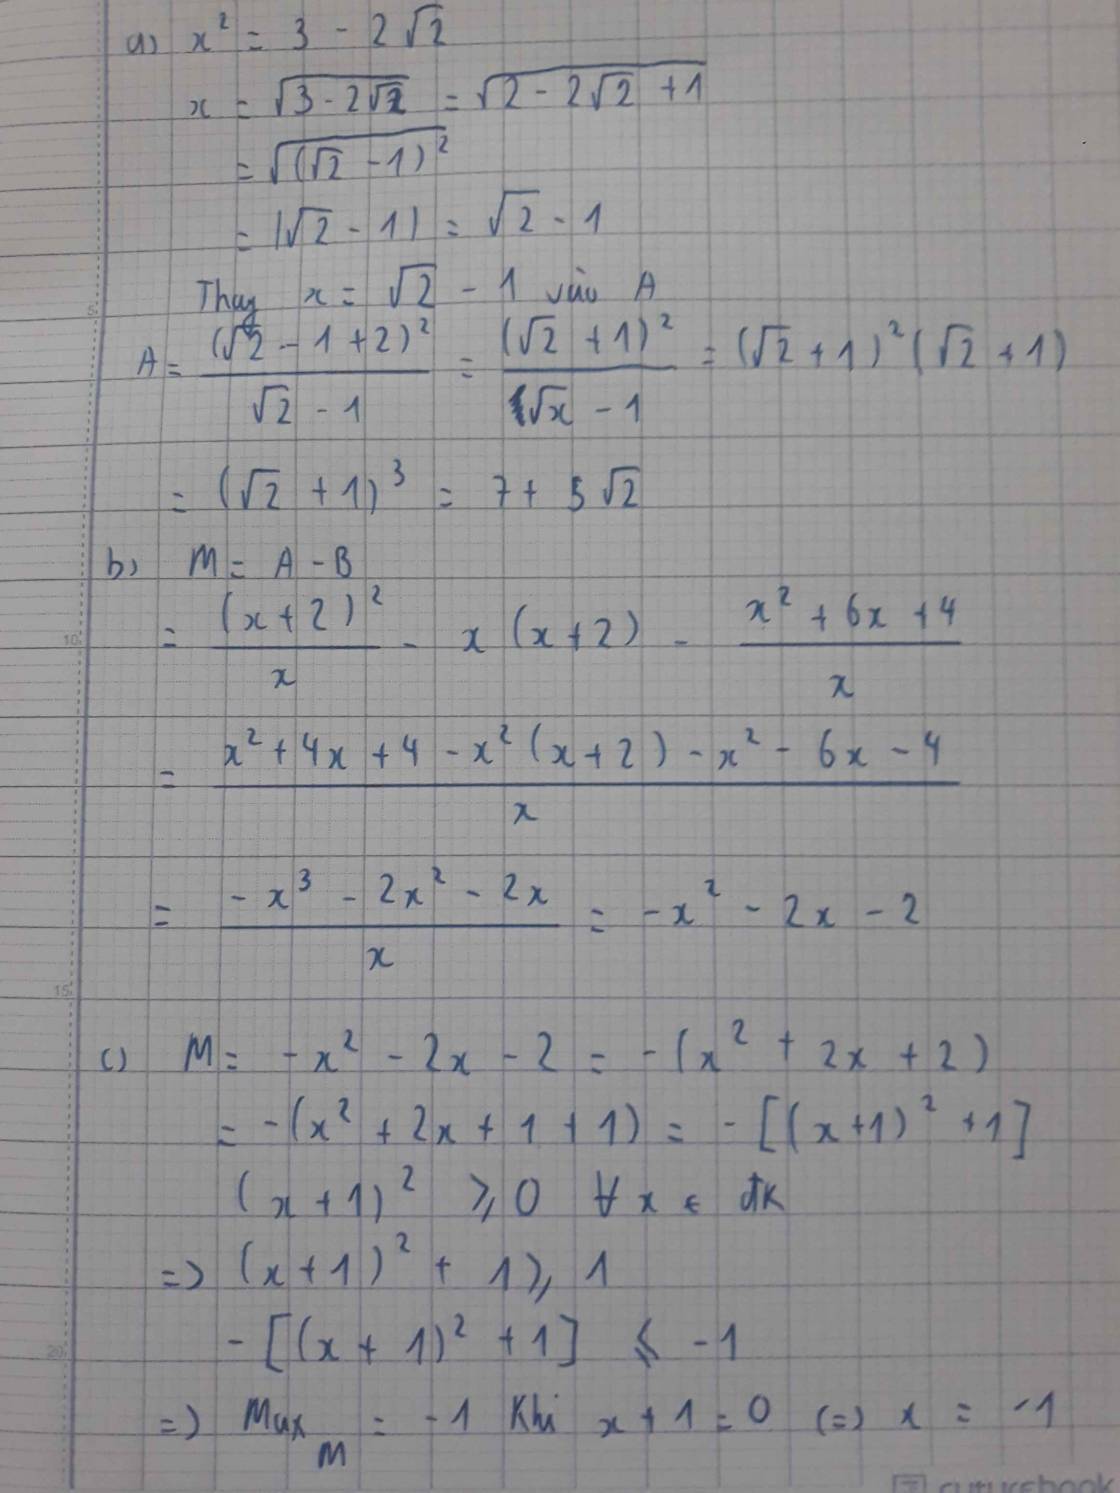 a) x² = 3 - 2√2
x = √(3 - 2√2) = √(2 - 2√2 + 1)
= √((√2 - 1)²)
= |√2 - 1| = √2 - 1
Thay x = √2 - 1 vào A
5
A = (√2 - 1 + 2)² / (√2 - 1) = (√2 + 1)² / (√x - 1) = (√2 + 1)² (√2 + 1)
= (√2 + 1)³ = 7 + 5√2
b) M = A - B
10
= (x + 2)² / x - x (x + 2) - (x² + 6x + 4) / x
= (x² + 4x + 4 - x² (x + 2) - x² - 6x - 4) / x
= (-x³ - 2x² - 2x) / x = -x² - 2x - 2
15
c) M = -x² - 2x - 2 = -(x² + 2x + 2)
= -(x² + 2x + 1 + 1) = -[(x+1)² + 1]
(x + 1)² ⩾ 0 ∀ x ∈ đk
=> (x + 1)² + 1 ⩾ 1
20
-[(x + 1)² + 1] ⩽ -1
=> Max M = -1 Khi x + 1 = 0 (=) x = -1
futurebook